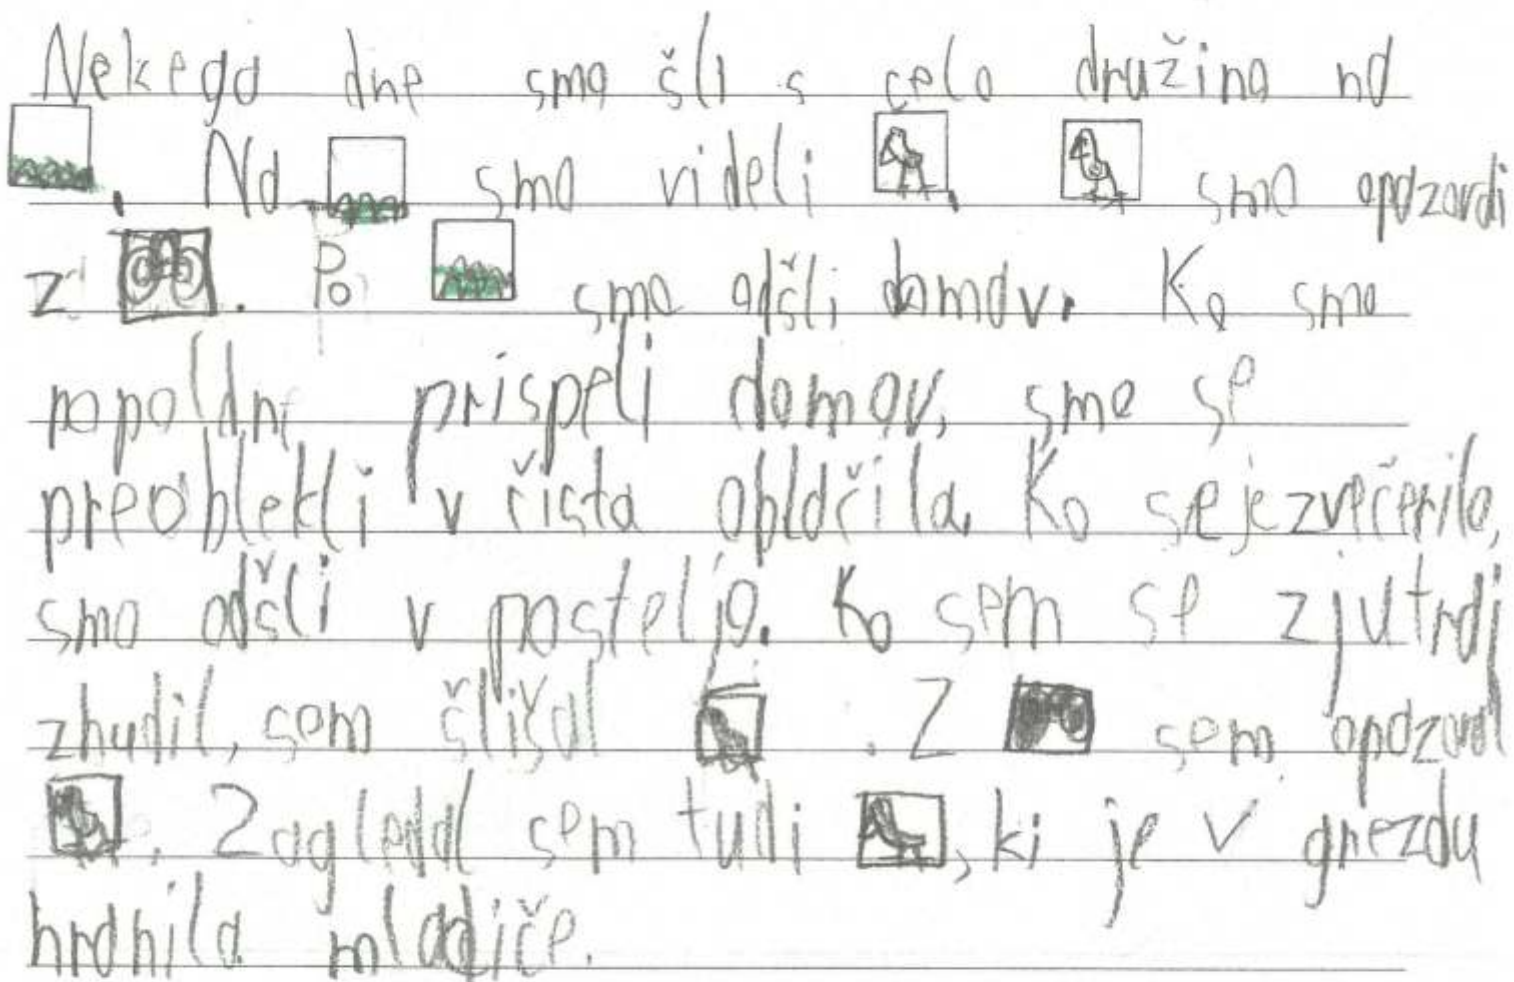 Nekega dne smo šli s celo družino na
. Na smo videli . smo opazovali
z . Po smo odšli domov. Ko smo
popoldne prispeli domov, smo se
preoblekli v čista oblačila. Ko se je zvečerilo,
smo odšli v posteljo. Ko sem se zjutraj
zbudil, sem šlišal . Z sem opazoval
. Zagledal sem tudi , ki je v gnezdu
hranila mladiče.